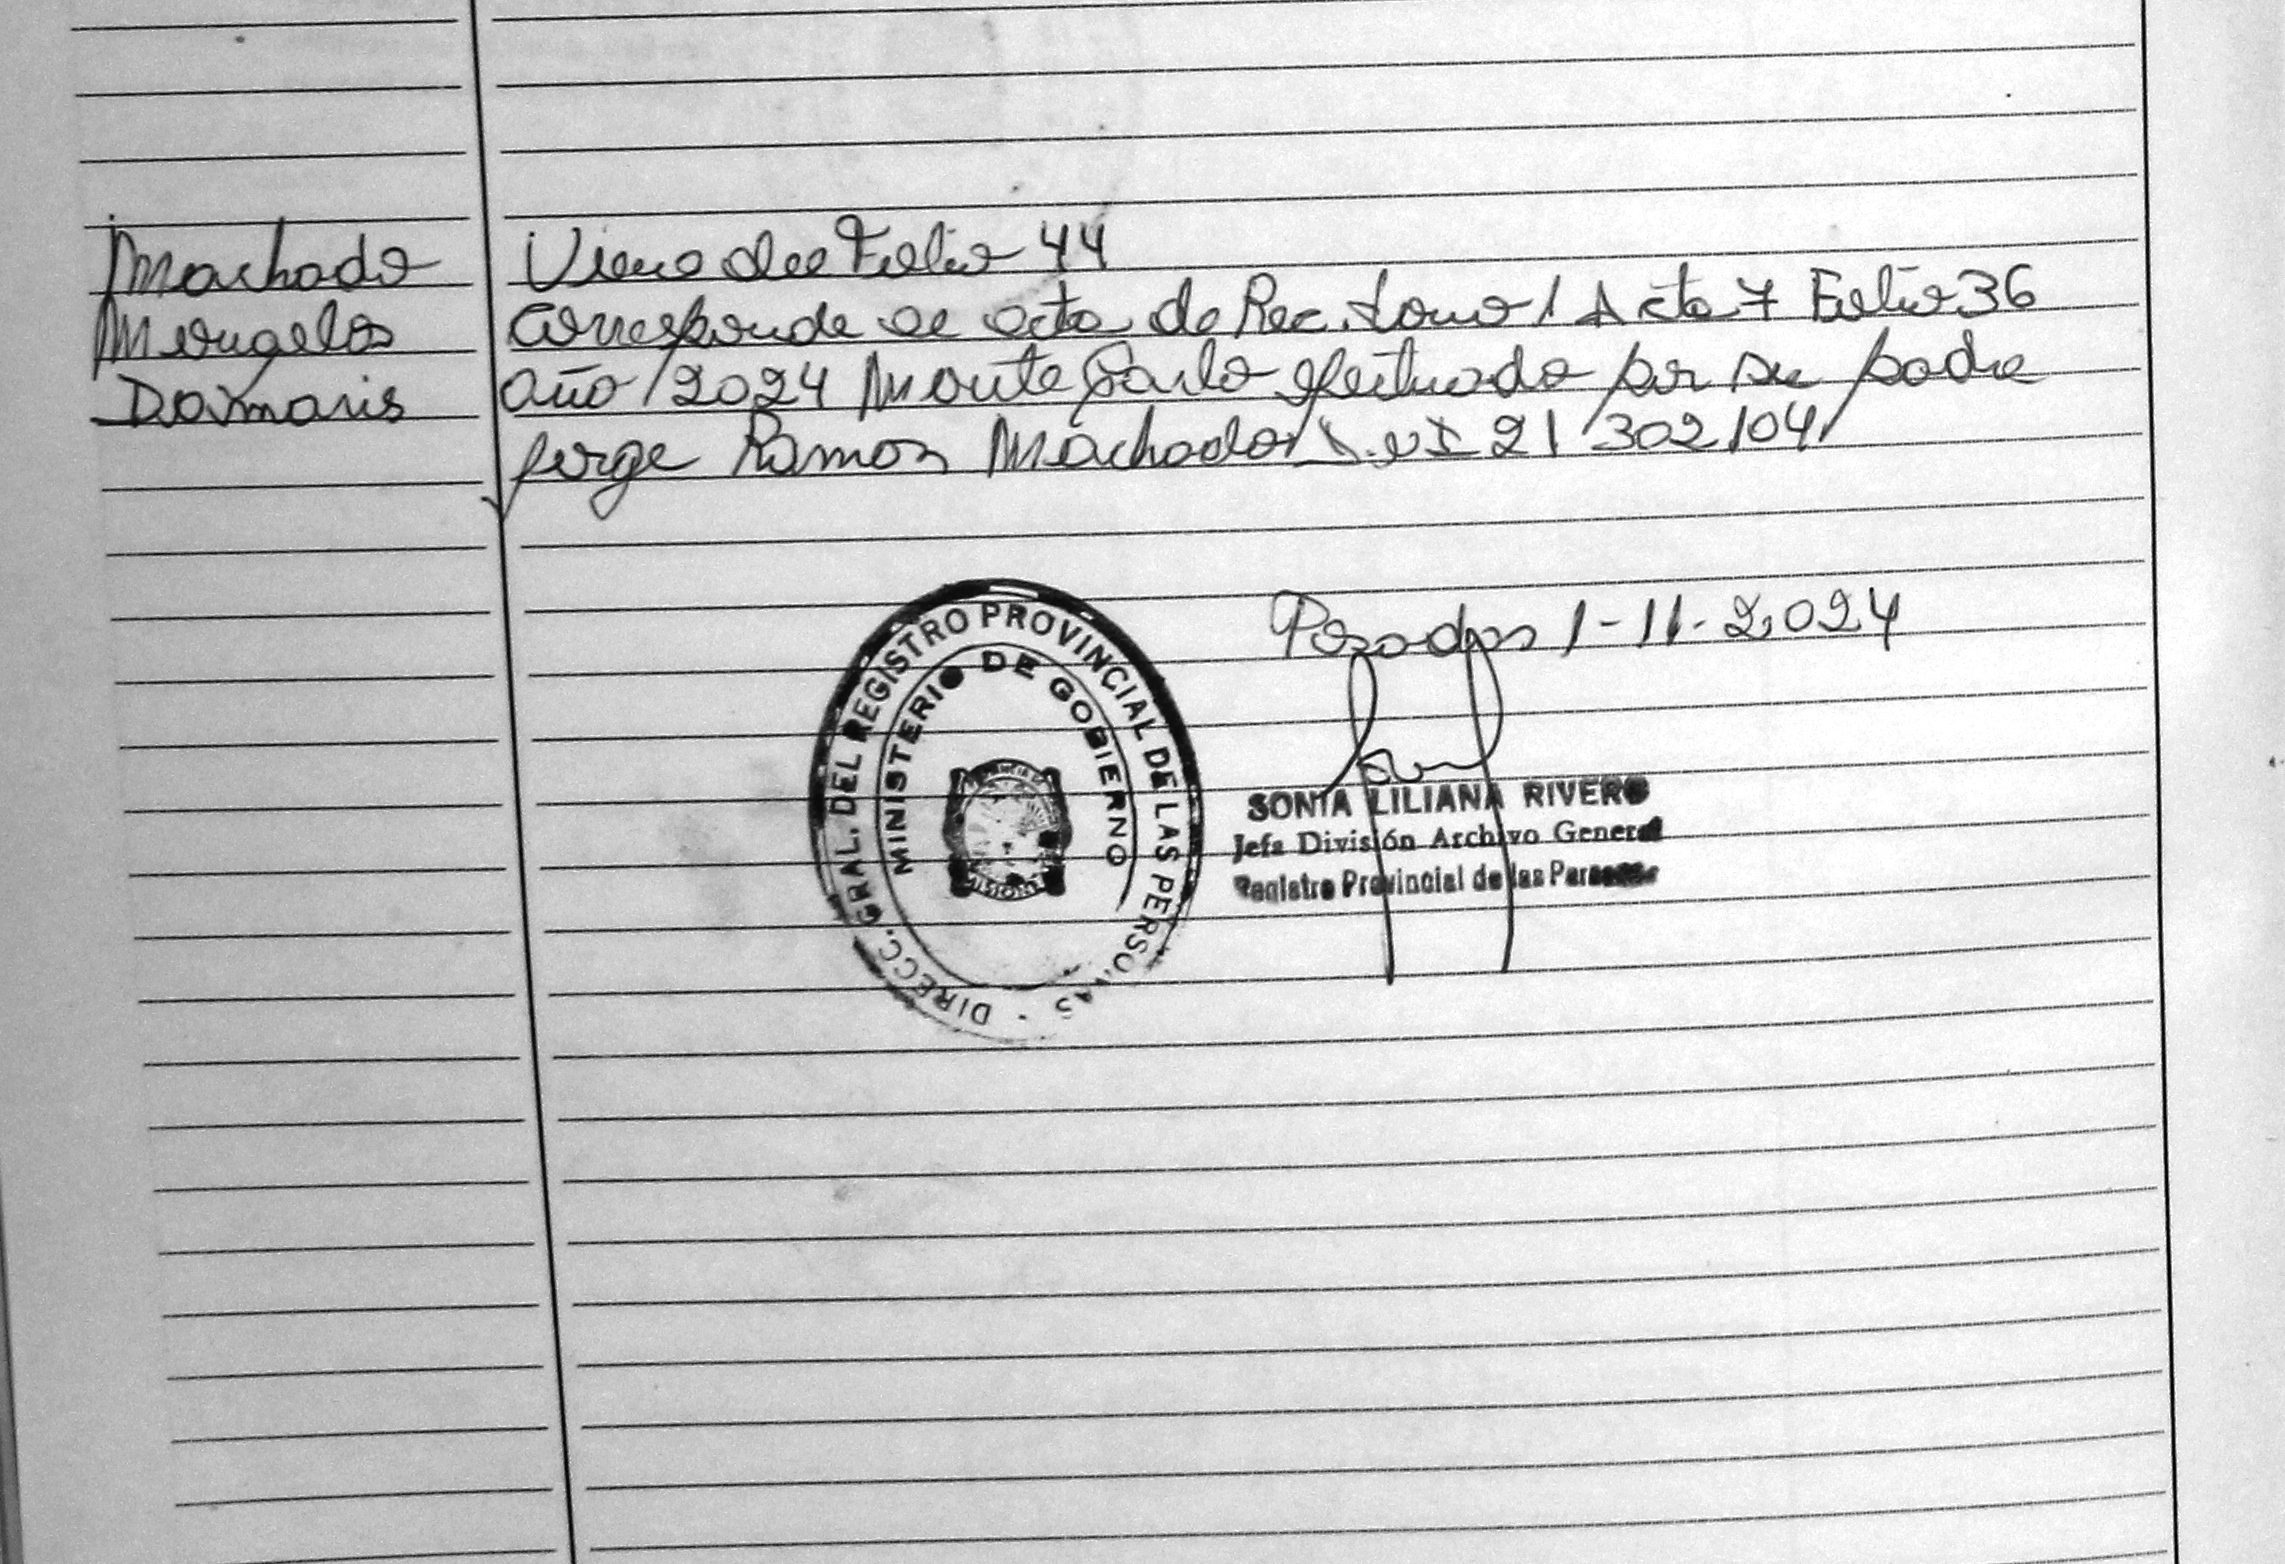 Machado
Mengelos
Damaris
Viene del Folio 44
Corresponde al acta de Rec. tomo 1 Acta 7 Folio 36
año 2024 Monte Carlo efectuado por su padre
Jorge Ramon Machado D.N.I 21 302 104
DIRECC. GRAL. DEL REGISTRO PROVINCIAL DE LAS PERSONAS
MINISTERIO DE GOBIERNO
MISIONES
Posadas 1-11-2.024
SONIA LILIANA RIVERO
Jefa División Archivo General
Registro Provincial de las Personas